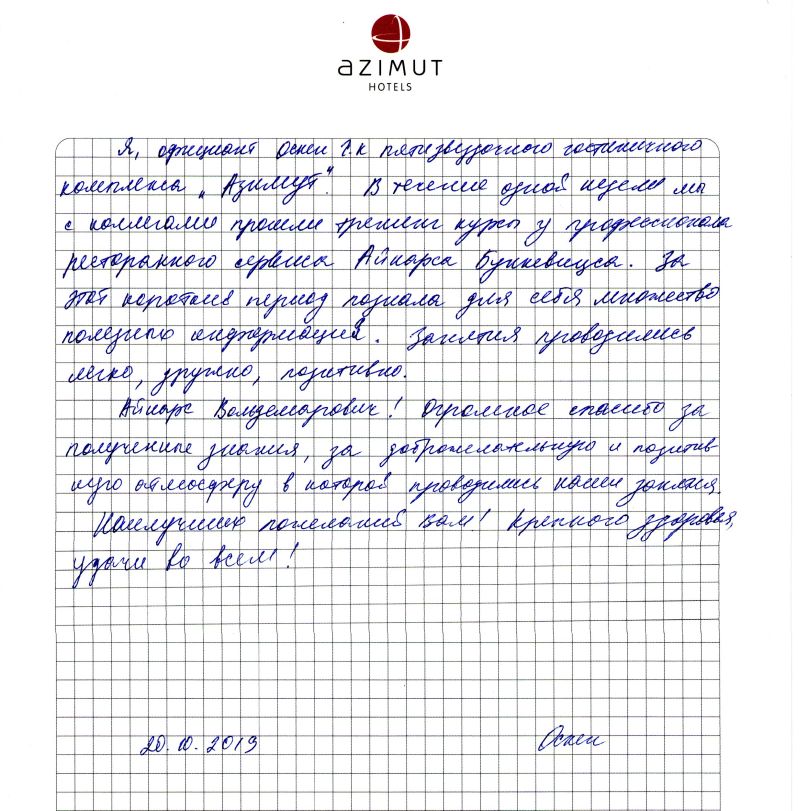 AZIMUT
HOTELS
Я, официант Оскен Г.К пятизвездочного гостиничного
комплекса „Азимут". В течение одной недели мы
с коллегами прошли тренинг курсы у профессионала
ресторанного сервиса Айнарса Бункевицса. За
этот короткий период познала для себя множество
полезных информаций. Занятия проводились
легко, дружно, позитивно.
Айнарс Вольдемарович! Огромное спасибо за
полученные знания, за доброжелательную и позитив
ную атмосферу в которой проводились наши занятия.
Наилучших пожеланий Вам! Крепкого здоровья,
удачи во всем!
20.10.2019 Оскен